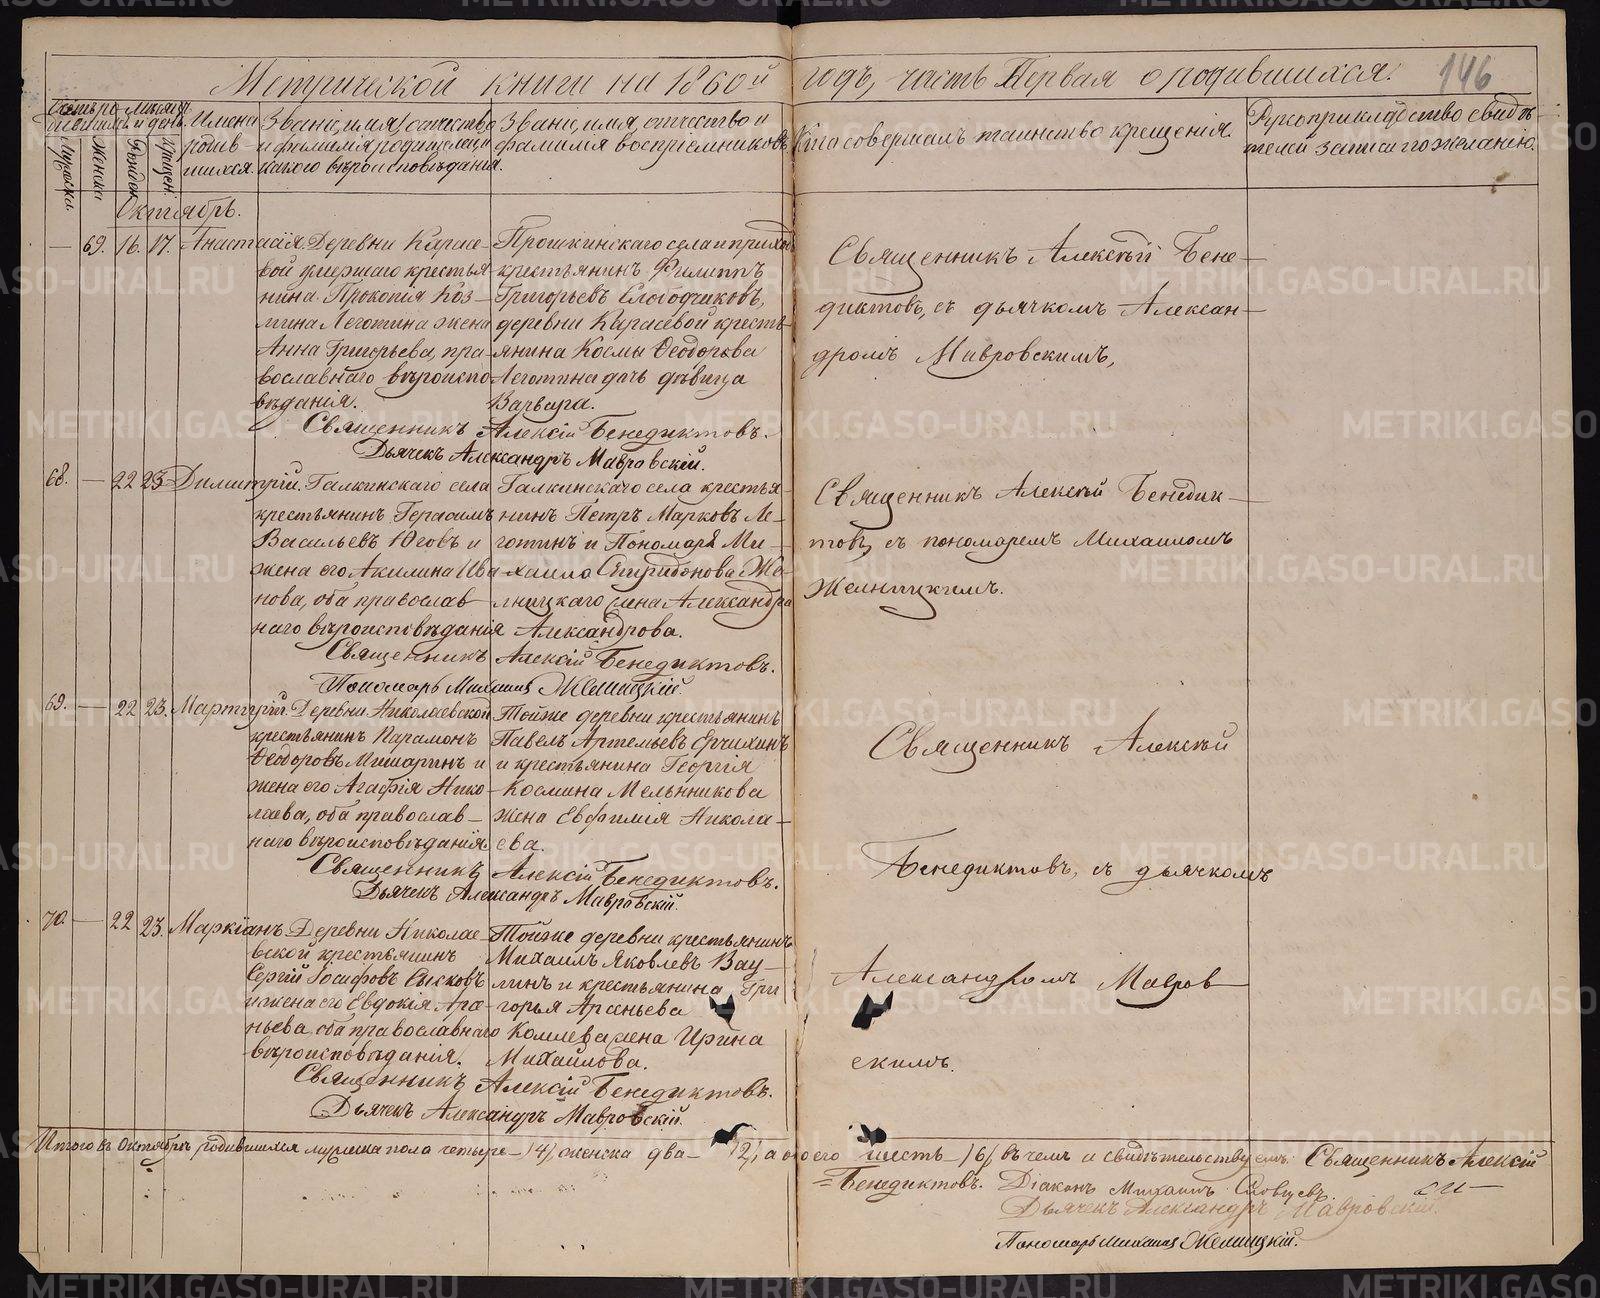 Метрической книги на 1860й годъ, часть Первая о родившихся.
146
Имена родив-шихся.
Званіе, имя, отчество и фамилія родителей и какого вѣроисповѣданія.
Званіе, имя, отчество и фамилія воспріемниковъ
Кто совершалъ таинство крещенія.
Рукоприкладство свидѣ-
телей записи по желанію.
Мужеска.
Женска
Рожден.
Крещен.
Октябрь.
— 69. 16. 17. Анастасія.
Деревни Карасе-
вой умершаго крестья
нина Прокопія Коз-
мина Леготина жена
Анна Григорьева, пра-
вославнаго вѣроиспо-
вѣданія.
Прошкинскаго села и приход
крестьянинъ Филиппъ
Григорьевъ Слободчиковъ,
деревни Карасевой кресть-
янина Космы Ѳеодорова
Леготина дочь дѣвица
Варвара.
Священникъ Алексѣй Бене-
диктовъ, съ дьячкомъ Алексан-
дромъ Мавровскимъ,
Священникъ Алексій Бенедиктовъ.
Дьячекъ Александръ Мавровскій.
68. — 22 23 Димитрій.
Галкинскаго села
крестьянинъ Герасимъ
Васильевъ Юговъ и
жена его Акилина Ива-
нова, оба православ-
наго вѣроисповѣданія
Галкинскаго села крестья-
нинъ Петръ Марковъ Ле-
готинъ и Пономаря Ми-
хаила Спиридонова Же-
лницкаго жена Александра
Александрова.
Священникъ Алексѣй Бенедик-
товъ, съ пономаремъ Михаиломъ
Желницкимъ.
Священникъ Алексій Бенедиктовъ.
Пономарь Михаилъ Желницкій.
69. — 22 23. Мартирій.
Деревни Николаевской
крестьянинъ Парамонъ
Ѳеодоровъ Мишаринъ и
жена его Агафія Нико-
лаева, оба православ-
наго вѣроисповѣданія.
Тойже деревни крестьянинъ
Павелъ Артемьевъ Ерчихинъ
и крестьянина Георгія
Космина Мельникова
жена Евфимія Никола-
ева.
Священникъ Алексѣй
Бенедиктовъ, съ дьячкомъ
Священникъ Алексій Бенедиктовъ.
Дьячекъ Александръ Мавровскій.
70. — 22 23. Маркіанъ.
Деревни Николае-
вской крестьянинъ
Сергій Іосафовъ Сысковъ
и жена его Евдокія Ана-
ньева, оба православнаго
вѣроисповѣданія.
Тойже деревни крестьянинъ
Михаилъ Яковлевъ Вау-
линъ и крестьянина Гри
горья Арсеньева
жена Ирина
Михайлова.
Александромъ Мавров-
скимъ.
Священникъ Алексій Бенедиктовъ.
Дьячекъ Александръ Мавровскій.
Итого въ Октябрѣ родившихся мужеска пола четыре — /4/ женска два — /2/, а обоего шесть — /6/, въ чемъ и свидѣтельствуемъ: Священникъ Алексій
Бенедиктовъ. Діаконъ Михаилъ Словцевъ.
Дьячекъ Александръ Мавровскій.
Пономарь Михаилъ Желницкій.
METRIKI.GASO-URAL.RU